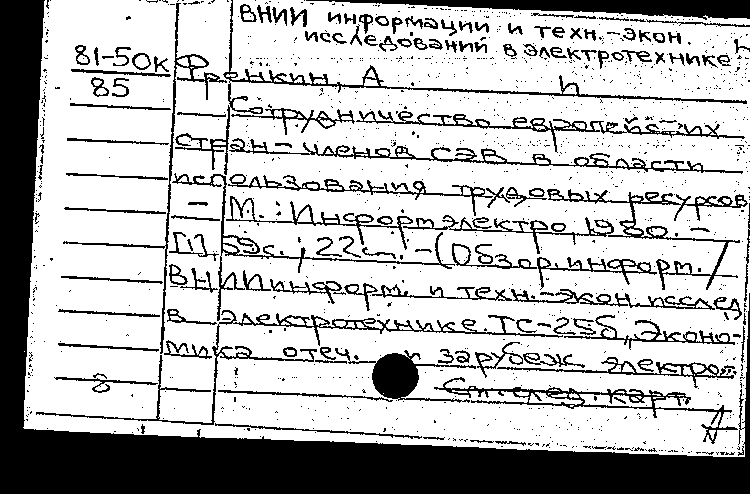 ВНИИ информации и техн.-экон.
исследований в электротехнике
81-50к Френкин, А. н
85
Сотрудничество европейских
стран-членов СЭВ в области
использования трудовых ресурсов
- М.: Информэлектро, 1980. -
[1], 59с.; 22см. - (Обзор. информ. /
ВНИИинформ. и техн.-экон. исслед
в электротехнике. ТС-25б, „Эконо-
мика отеч. и зарубеж. электро-
8 См. след. карт.